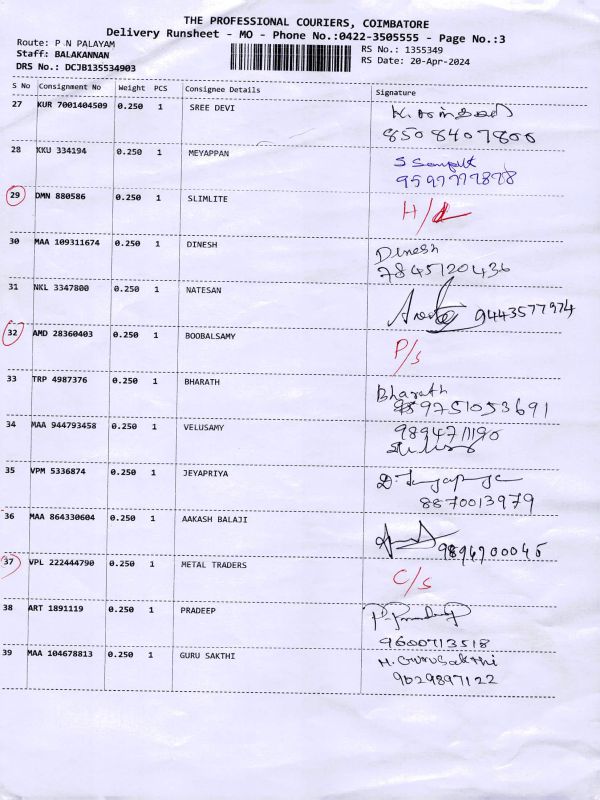 THE PROFESSIONAL COURIERS, COIMBATORE
Delivery Runsheet - MO - Phone No.:0422-3505555 - Page No.:3
Route: P N PALAYAM
RS No.: 1355349
Staff: BALAKANNAN
RS Date: 20-Apr-2024
DRS No.: DCJB135534903
S No Consignment No Weight PCS Consignee Details Signature
27 KUR 7001404509 0.250 1 SREE DEVI
8508407800
28 KKU 334194 0.250 1 MEYAPPAN
S Sampath
9597777878
29 DMN 880586 0.250 1 SLIMLITE H/L
30 MAA 109311674 0.250 1 DINESH Dinesh
7845120436
31 NKL 3347800 0.250 1 NATESAN
9443577974
32 AMD 28360403 0.250 1 BOOBALSAMY P/s
33 TRP 4987376 0.250 1 BHARATH Bharath
9751053691
34 MAA 944793458 0.250 1 VELUSAMY 9894711190
35 VPM 5336874 0.250 1 JEYAPRIYA
8870013979
36 MAA 864330604 0.250 1 AAKASH BALAJI
37 VPL 222444790 0.250 1 METAL TRADERS C/s
38 ART 1891119 0.250 1 PRADEEP P. Pradeep
9600713518
39 MAA 104678813 0.250 1 GURU SAKTHI M. Gurusakthi
9629897122